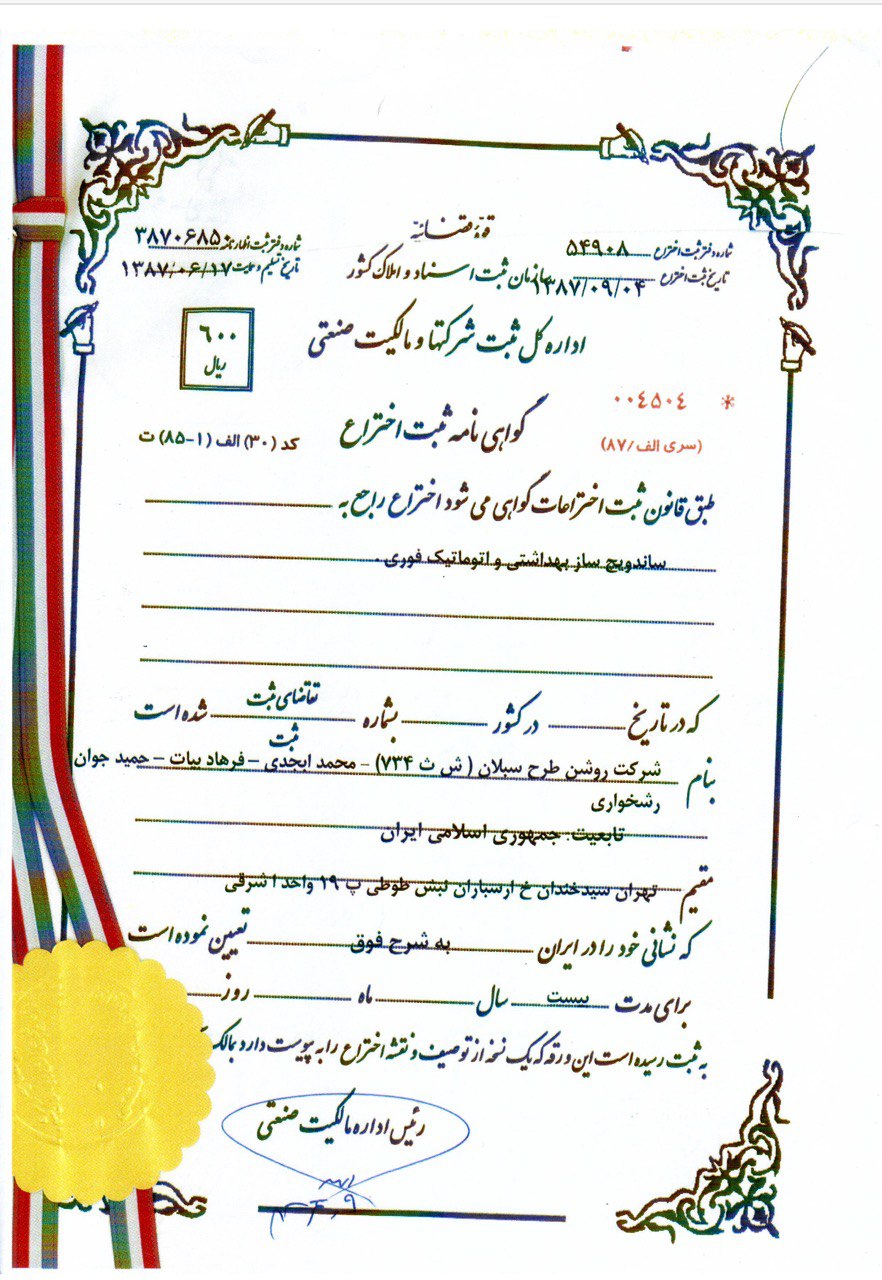 قوه قضائیه
شماره دفتر ثبت اختراع ۵۴۹۰۸
شماره دفتر ثبت اظهارنامه ۳۸۷۰۶۸۵۰
سازمان ثبت اسناد و املاک کشور
تاریخ ثبت اختراع ۱۳۸۷/۰۹/۰۴
تاریخ تسلیم و حمایت ۱۳۸۷/۰۶/۱۷
اداره کل ثبت شرکتها و مالکیت صنعتی
۶۰۰
ریال
* ۰۰۴۵۰۴
(سری الف/۸۷)
گواهی نامه ثبت اختراع
کد (۳۰) الف (۱-۸۵) ت
طبق قانون ثبت اختراعات گواهی می شود اختراع راجع به
ساندویچ ساز بهداشتی و اتوماتیک فوری .
که در تاریخ در کشور بشماره تقاضای ثبت شده است
ثبت
بنام شرکت روشن طرح سبلان ( ش ث ۷۳۴) - محمد ابجدی - فرهاد بیات - حمید جوان
رشخواری
تابعیت: جمهوری اسلامی ایران
مقیم تهران سیدخندان خ ارسباران نبش طوطی پ ۱۹ واحد ۱ شرقی
که نشانی خود را در ایران به شرح فوق تعیین نموده است
برای مدت بیست سال ماه روز
به ثبت رسیده است این ورقه که یک نسخه از توصیف و نقشه اختراع را به پیوست دارد بمالک
رئیس اداره مالکیت صنعتی